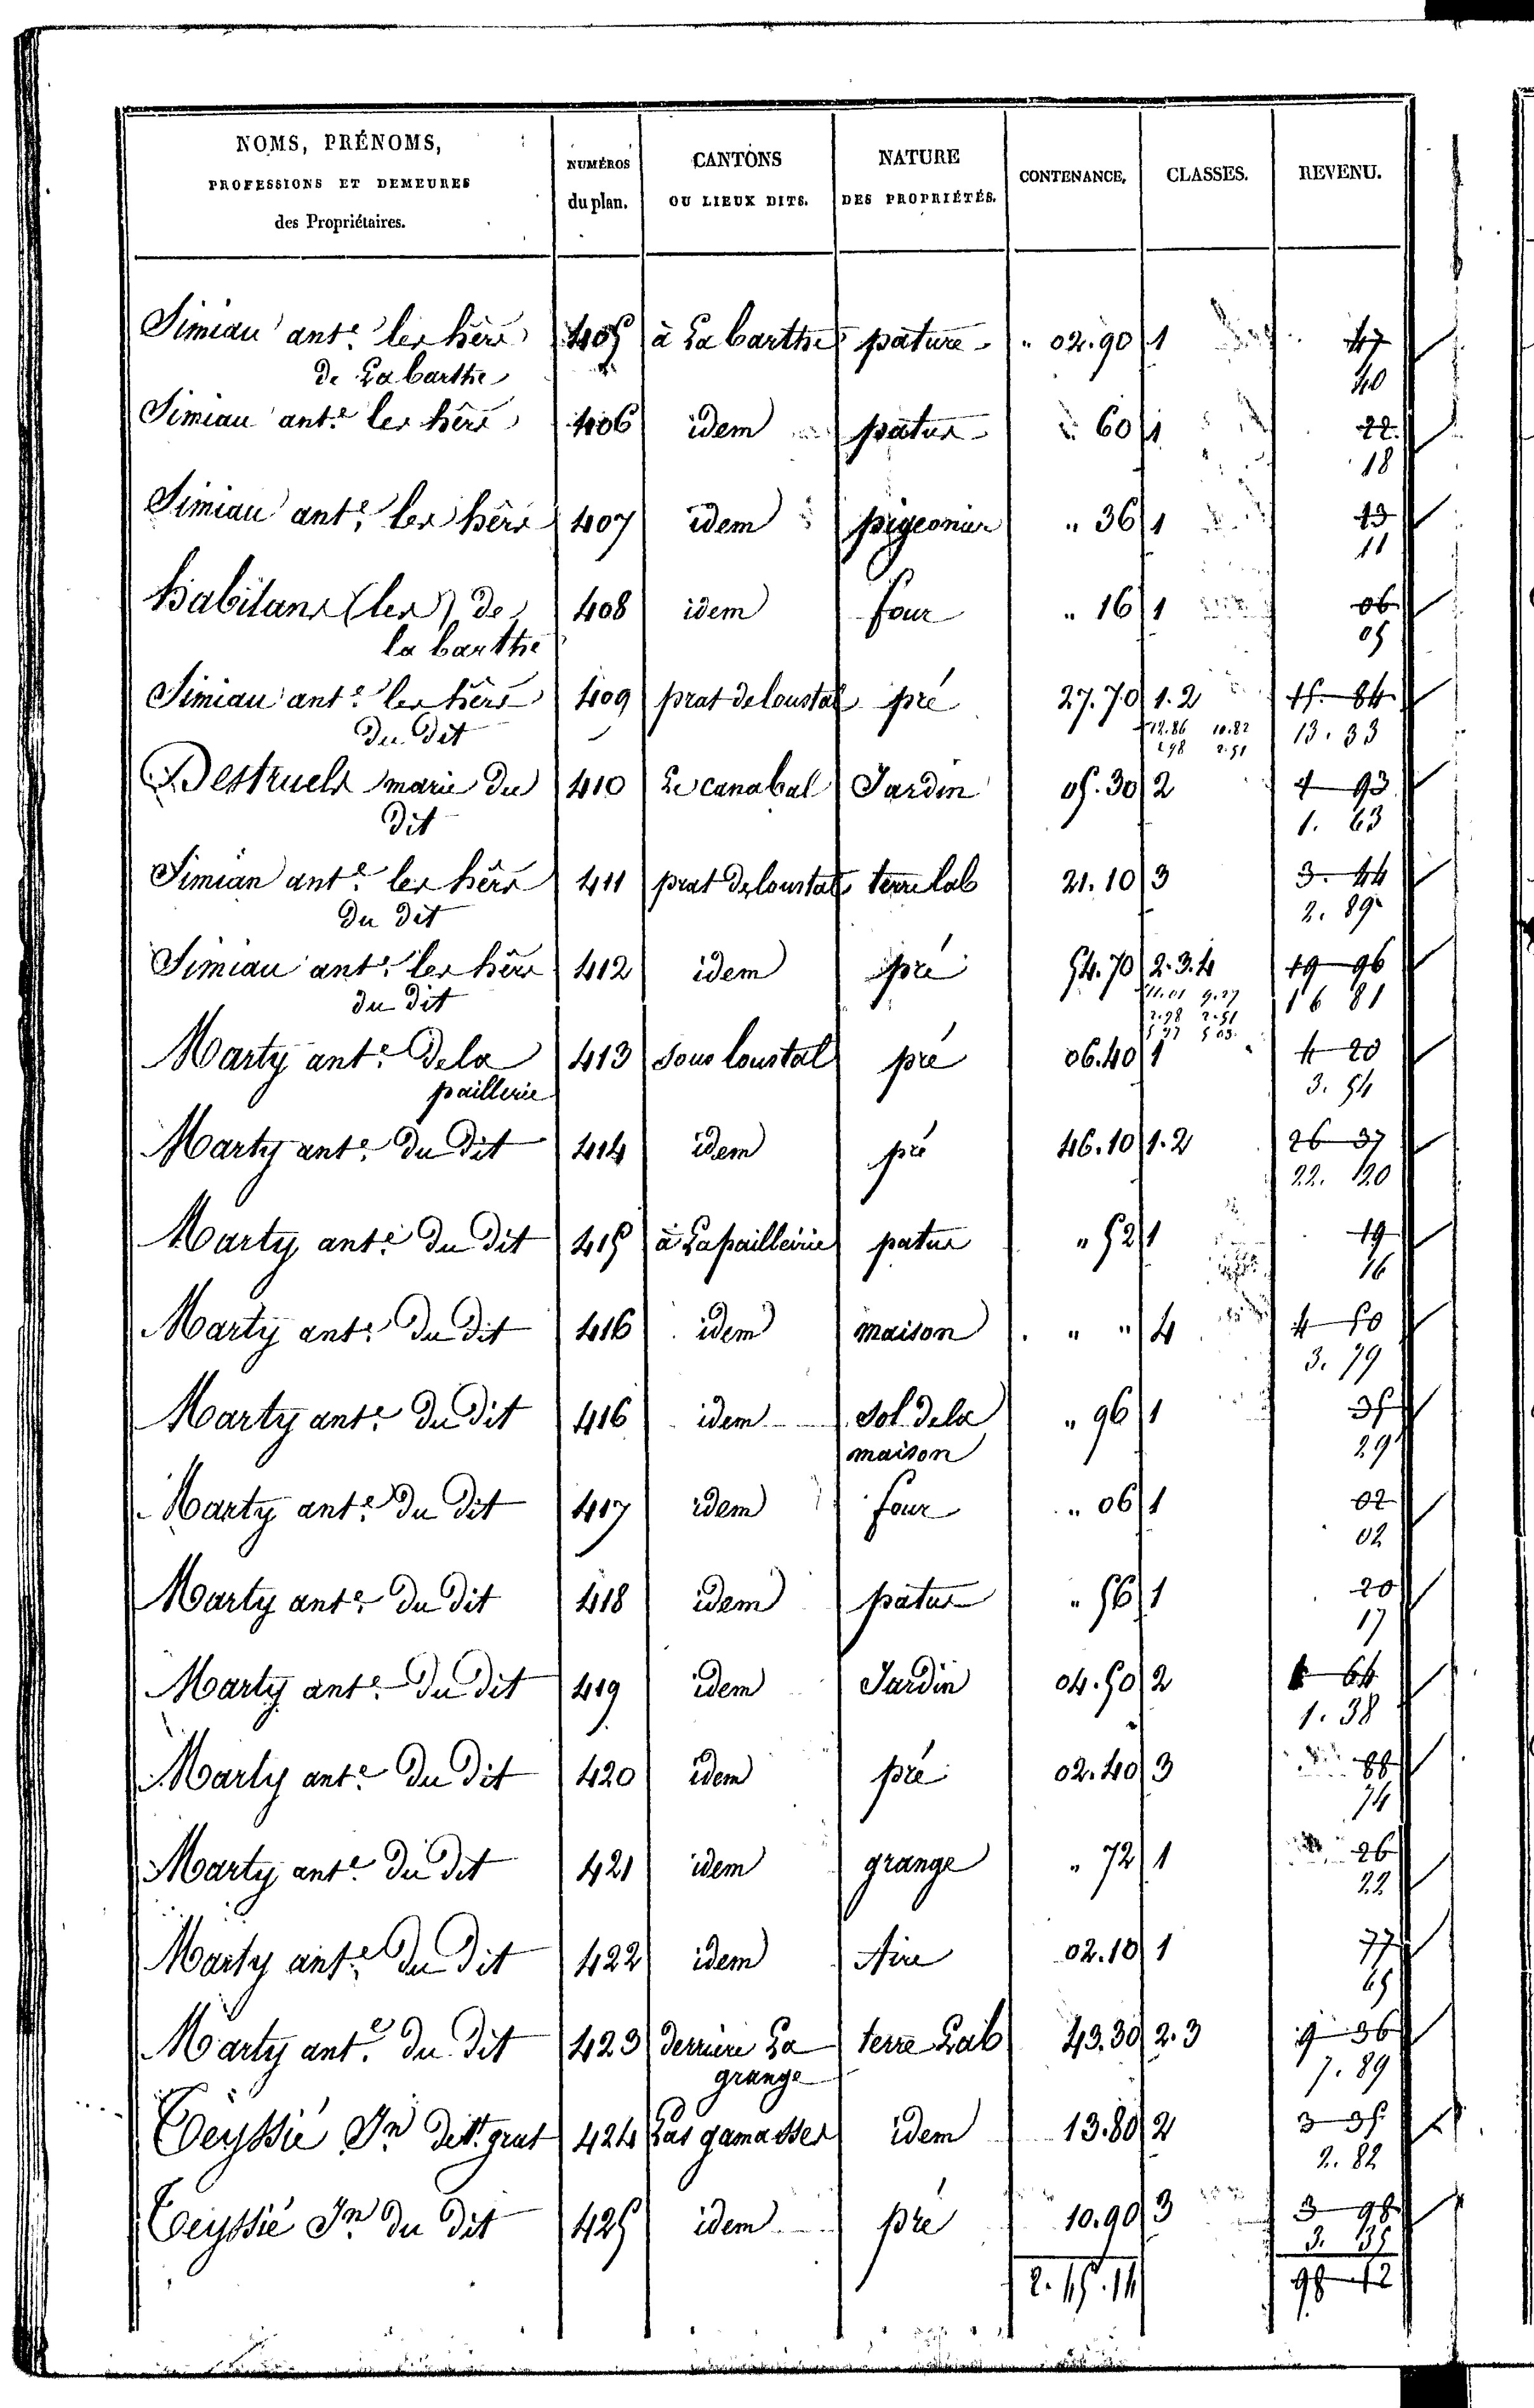 NOMS, PRÉNOMS, PROFESSIONS ET DEMEURES des Propriétaires. NUMÉROS du plan. CANTONS OU LIEUX DITS. NATURE DES PROPRIÉTÉS. CONTENANCE. CLASSES. REVENU.
Simiau ant.e les hérs 405 à La barthe pature " 02.90 1 47
de La barthe 40
Simiau ant.e les hérs 406 idem patus " 60 1 22
18
Simiau ant.e les hérs 407 idem pigeonier " 36 1 13
11
habitans (les) de 408 idem four " 16 1 06
la barthe 05
Simiau ant.e les hérs 409 prat de loustal pré 27.70 1.2 15. 84
du dit 12.86 10.82 13. 33
2.98 2.51
Destruels marie du 410 Le canabal Jardin 05.30 2 1 93
dit 1. 63
Simian ant.e les hérs 411 prat de loustal terre lab 21.10 3 3. 44
du dit 2. 89
Simiau ant.e les hérs 412 idem pré 54.70 2.3.4 19 96
du dit 11.01 9.27 16 81
2.98 2.51
5 97 5 03
Marty ant.e de la 413 sous loustal pré 06.40 1 4 20
paillerie 3. 54
Marty ant.e du dit 414 idem pré 46.10 1.2 26 37
22. 20
Marty ant.e du dit 415 à La pailleirie patus " 52 1 19
16
Marty ant.e du dit 416 idem maison " " 4 4 50
3. 79
Marty ant.e du dit 416 idem sol de la " 96 1 35
maison 29
Marty ant.e du dit 417 idem four " 06 1 02
02
Marty ant.e du dit 418 idem patus " 56 1 20
17
Marty ant.e du dit 419 idem Jardin 04.50 2 1 64
1. 38
Marty ant.e du dit 420 idem pré 02.40 3 88
74
Marty ant.e du dit 421 idem grange " 72 1 26
22
Marty ant.e du dit 422 idem Aire 02.10 1 77
65
Marty ant.e du dit 423 derriere La terre Lab 43.30 2.3 9 36
grange 7. 89
Teyssié Jn de gras 424 Las gamasses idem 13.80 2 3 35
2. 82
Teyssié Jn du dit 425 idem pré 10.90 3 3 98
3. 35
2. 45. 14 98 12